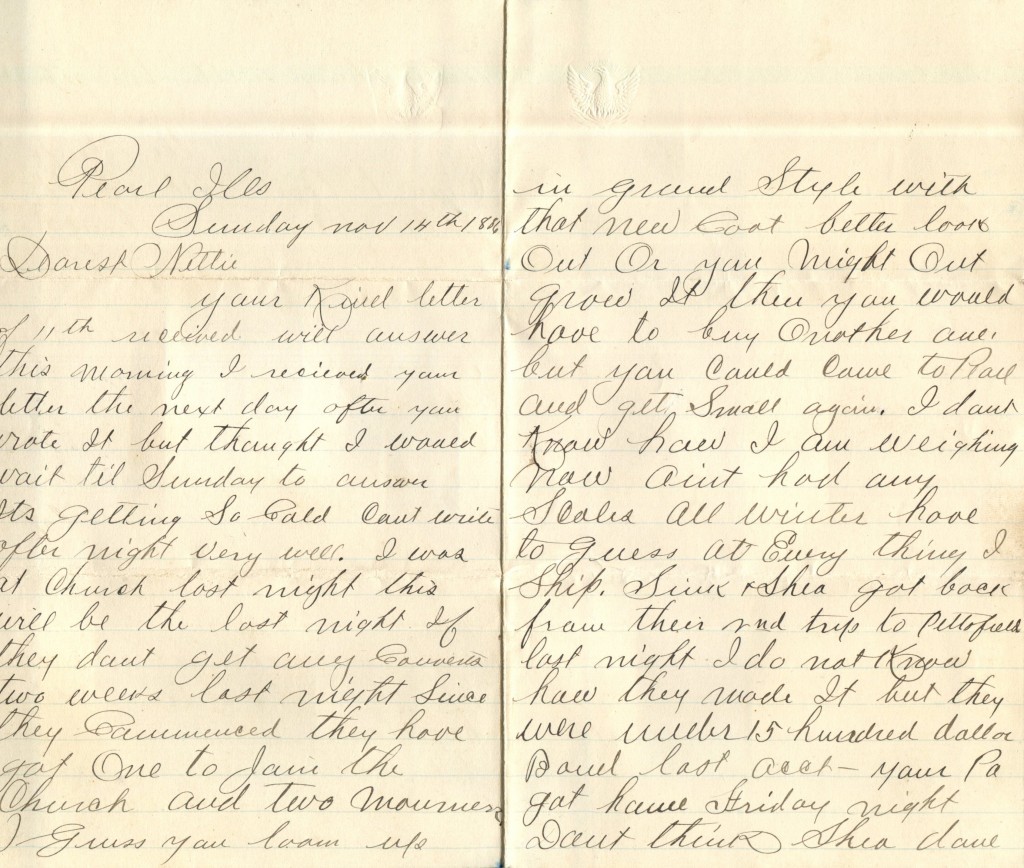 Pearl Ills
Sunday nov 14th 1886
Dearest Nettie
your Kind letter
of 11th received will answer
this morning I recieved your
letter the next day after you
wrote It but thought I would
wait til Sunday to answer
Its getting So Cold Cant write
after night very well. I was
at Church last night this
will be the last night If
they dont get any Converts
two weeks last night Since
they Commenced they have
got One to Join the
Church and two mourners
I Guess you loom up
in grand Style with
that new Coat better look
Out Or you might Out
grow It then you would
have to buy Another one.
but you Could Come to Pearl
and get Small again. I dont
Know how I am weighing
now aint had any
Scales all winter have
to guess at Every thing I
Ship. Sink & Shea got back
from their 2nd trip to Pittsfield
last night I do not Know
how they made It but they
were under 15 hundred dollar
Bond last acct - your Pa
got home Friday night
Dont think Shea done